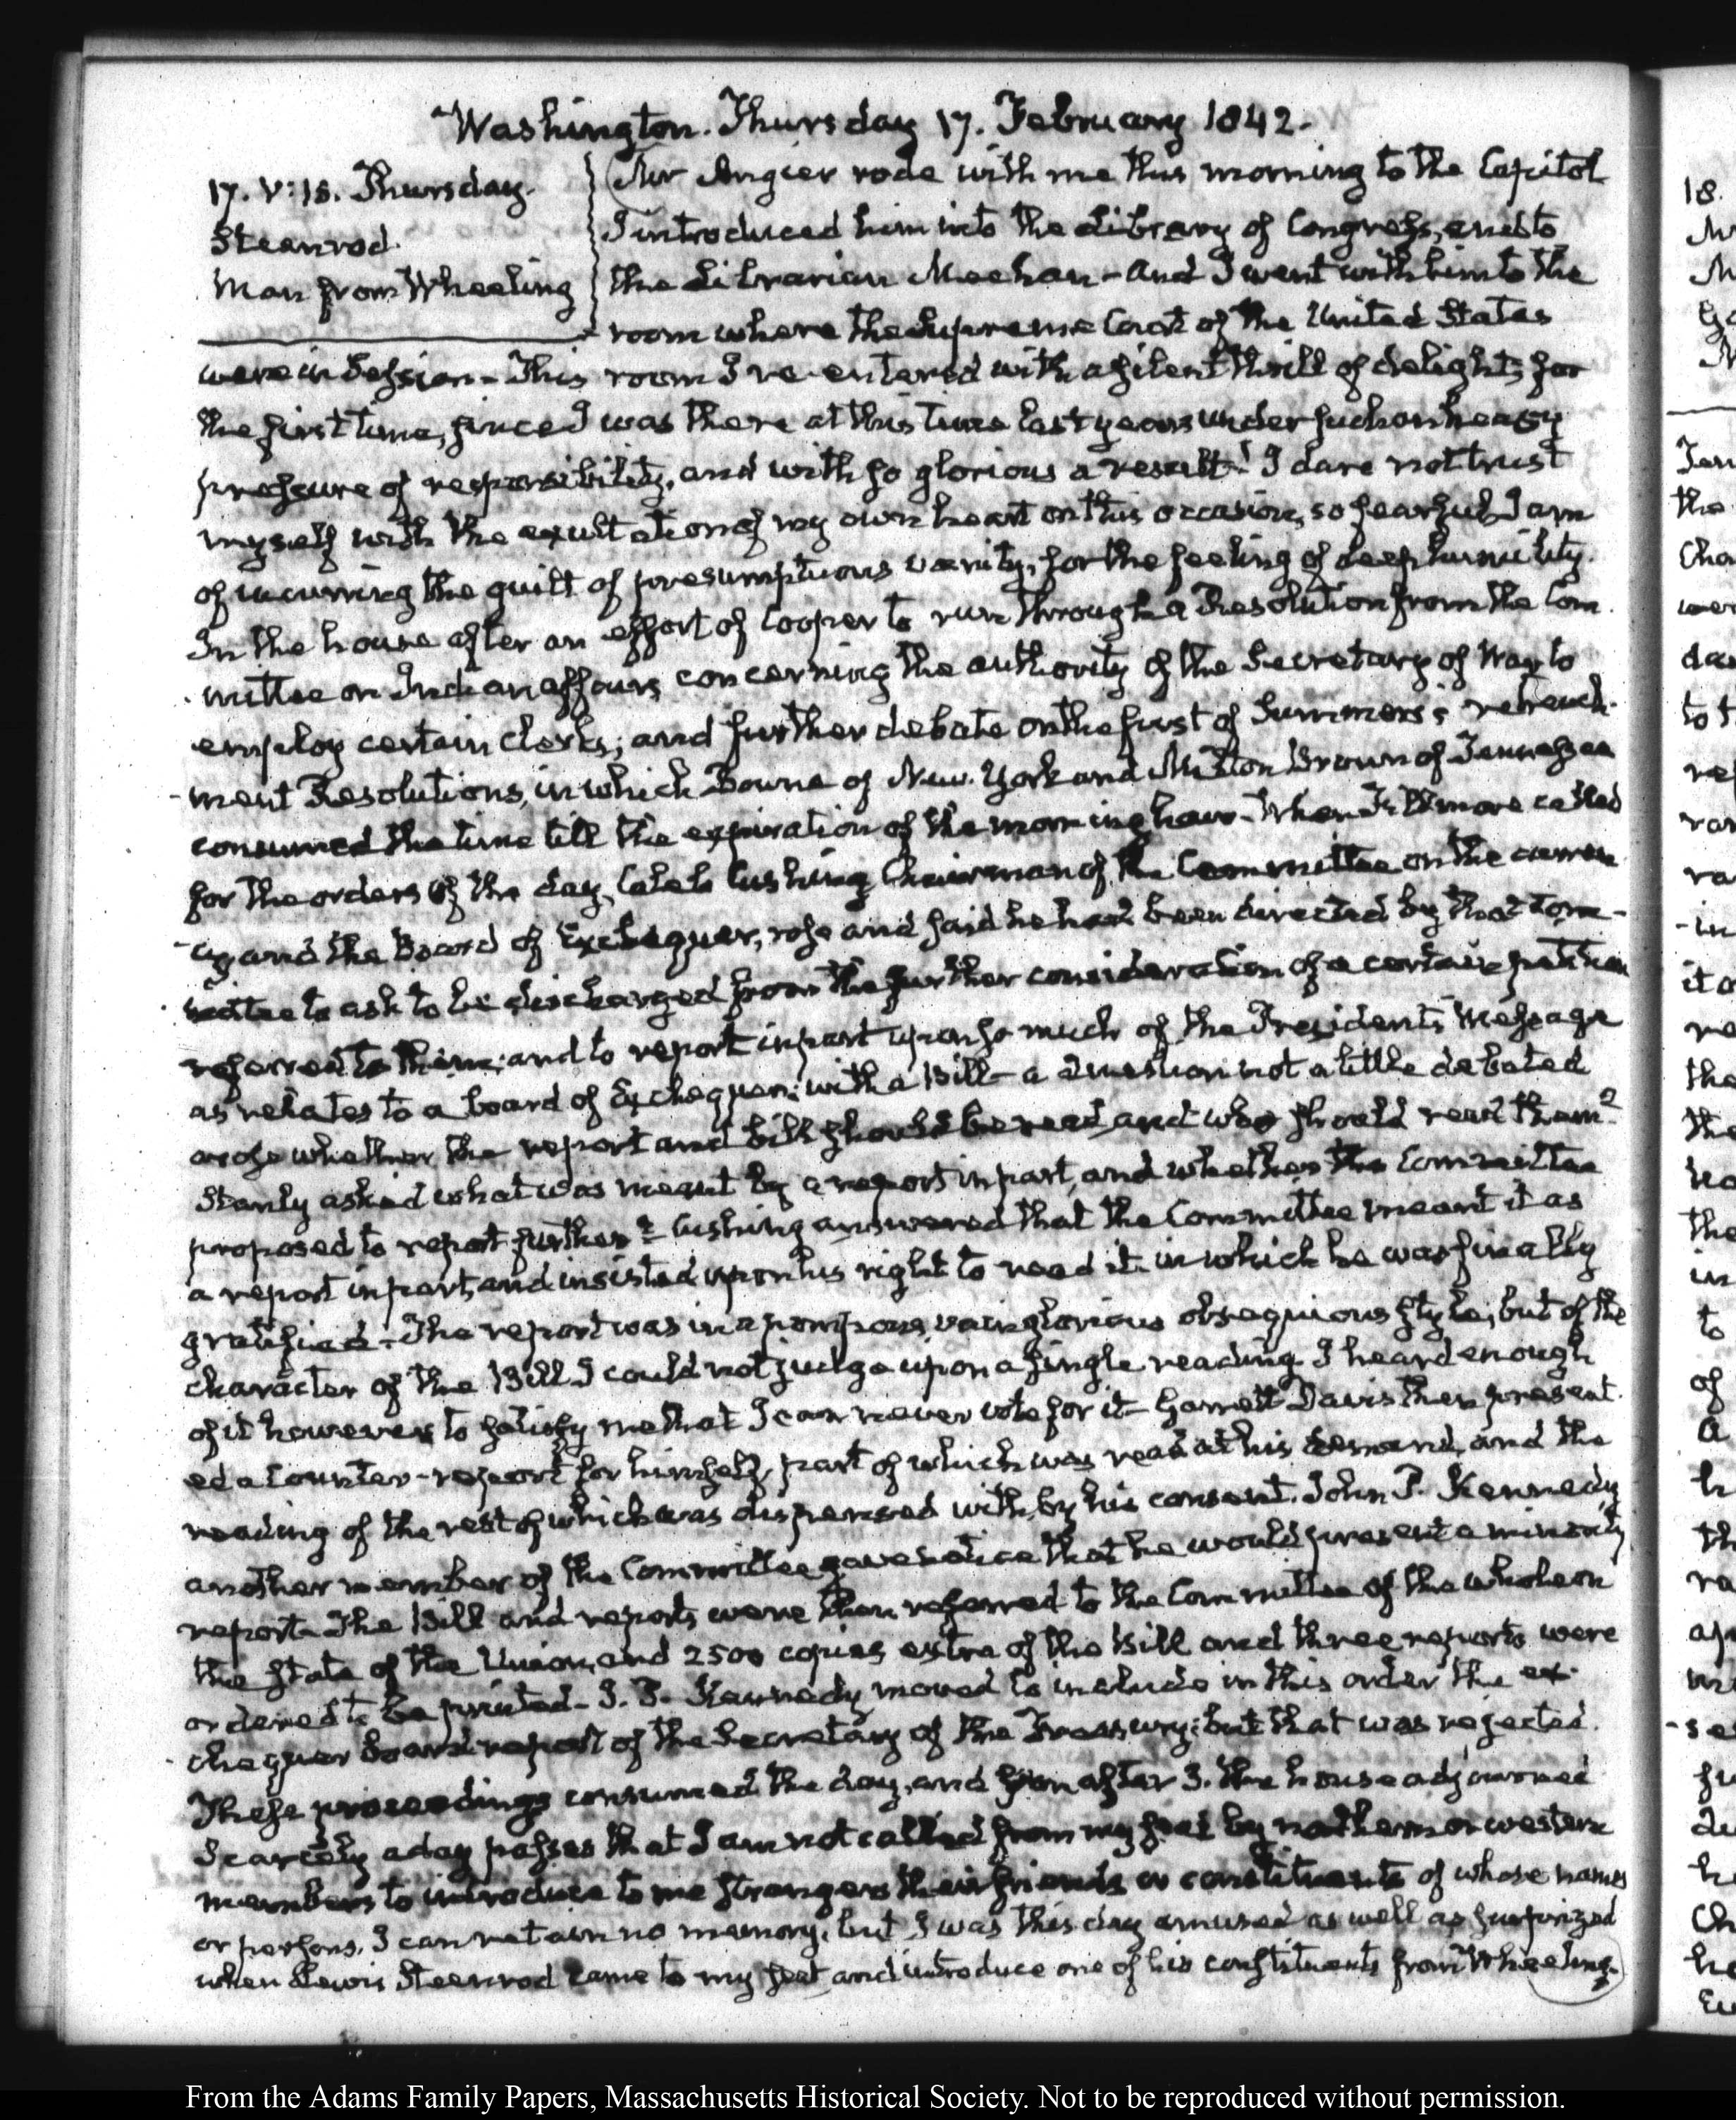 Washington. Thursday 17. February 1842.
17. V:15. Thursday.
Steenrod.
Man from Wheeling
Mr Angier rode with me this morning to the Capitol
I introduced him into the Library of Congress, and to
the Librarian Meehan - And I went with him to the
room where the Supreme Court of the United States
were in Session - This room I re-entered with a silent thrill of delight, for
the first time, since I was there at this time last year under such an heavy
pressure of responsibility, and with so glorious a result! I dare not trust
myself with the exultation of my own heart on this occasion, so fearful I am
of incurring the guilt of presumptuous vanity, for the feeling of deep humility.
In the house after an effort of Cooper to run through a Resolution from the Com
mittee on Indian affairs concerning the authority of the Secretary of War to
employ certain clerks; and further debate on the first of Summers's retrench-
-ment Resolutions, in which Bowne of New-York and Milton Brown of Tennessee
consumed the time till the expiration of the morning hour - When Fillmore called
for the orders of the day, Caleb Cushing Chairman of the Committee on the curren
-cy and the Board of Exchequer, rose and said he had been directed by that Com-
mittee to ask to be discharged from the further consideration of a certain petition
referred to them; and to report in part upon so much of the President's Message
as relates to a board of Exchequer; with a Bill - a question not a little debated
arose whether the report and bill should be read, and who should read them?
Stanly asked what was meant by a report in part, and whether the Committee
proposed to report further? Cushing answered that the Committee meant it as
a report in part, and insisted upon his right to read it - in which he was finally
gratified - The report was in a pompous, vainglorious obsequious style, but of the
character of the Bill I could not judge upon a single reading. I heard enough
of it however to satisfy me that I can never vote for it - Garrett Davis then present-
ed a Counter-report for himself, part of which was read at his demand, and the
reading of the rest of which was dispensed with, by his consent. John P. Kennedy
another member of the Committee gave notice that he would present a minority
report - The Bill and reports were then referred to the Committee of the whole on
the state of the Union, and 2500 copies extra of the Bill and three reports were
ordered to be printed - J. P. Kennedy moved to include in this order the ex-
chequer board report of the Secretary of the Treasury; but that was rejected.
These proceedings consumed the day, and soon after 3. the house adjourned
Scarcely a day passes that I am not called from my seat by northern or western
members to introduce to me strangers their friends or constituents of whose names
or persons, I can retain no memory, but I was this day amused as well as surprized
when Lewis Steenrod came to my seat and introduce one of his constituents from Wheeling.
18.
From the Adams Family Papers, Massachusetts Historical Society. Not to be reproduced without permission.